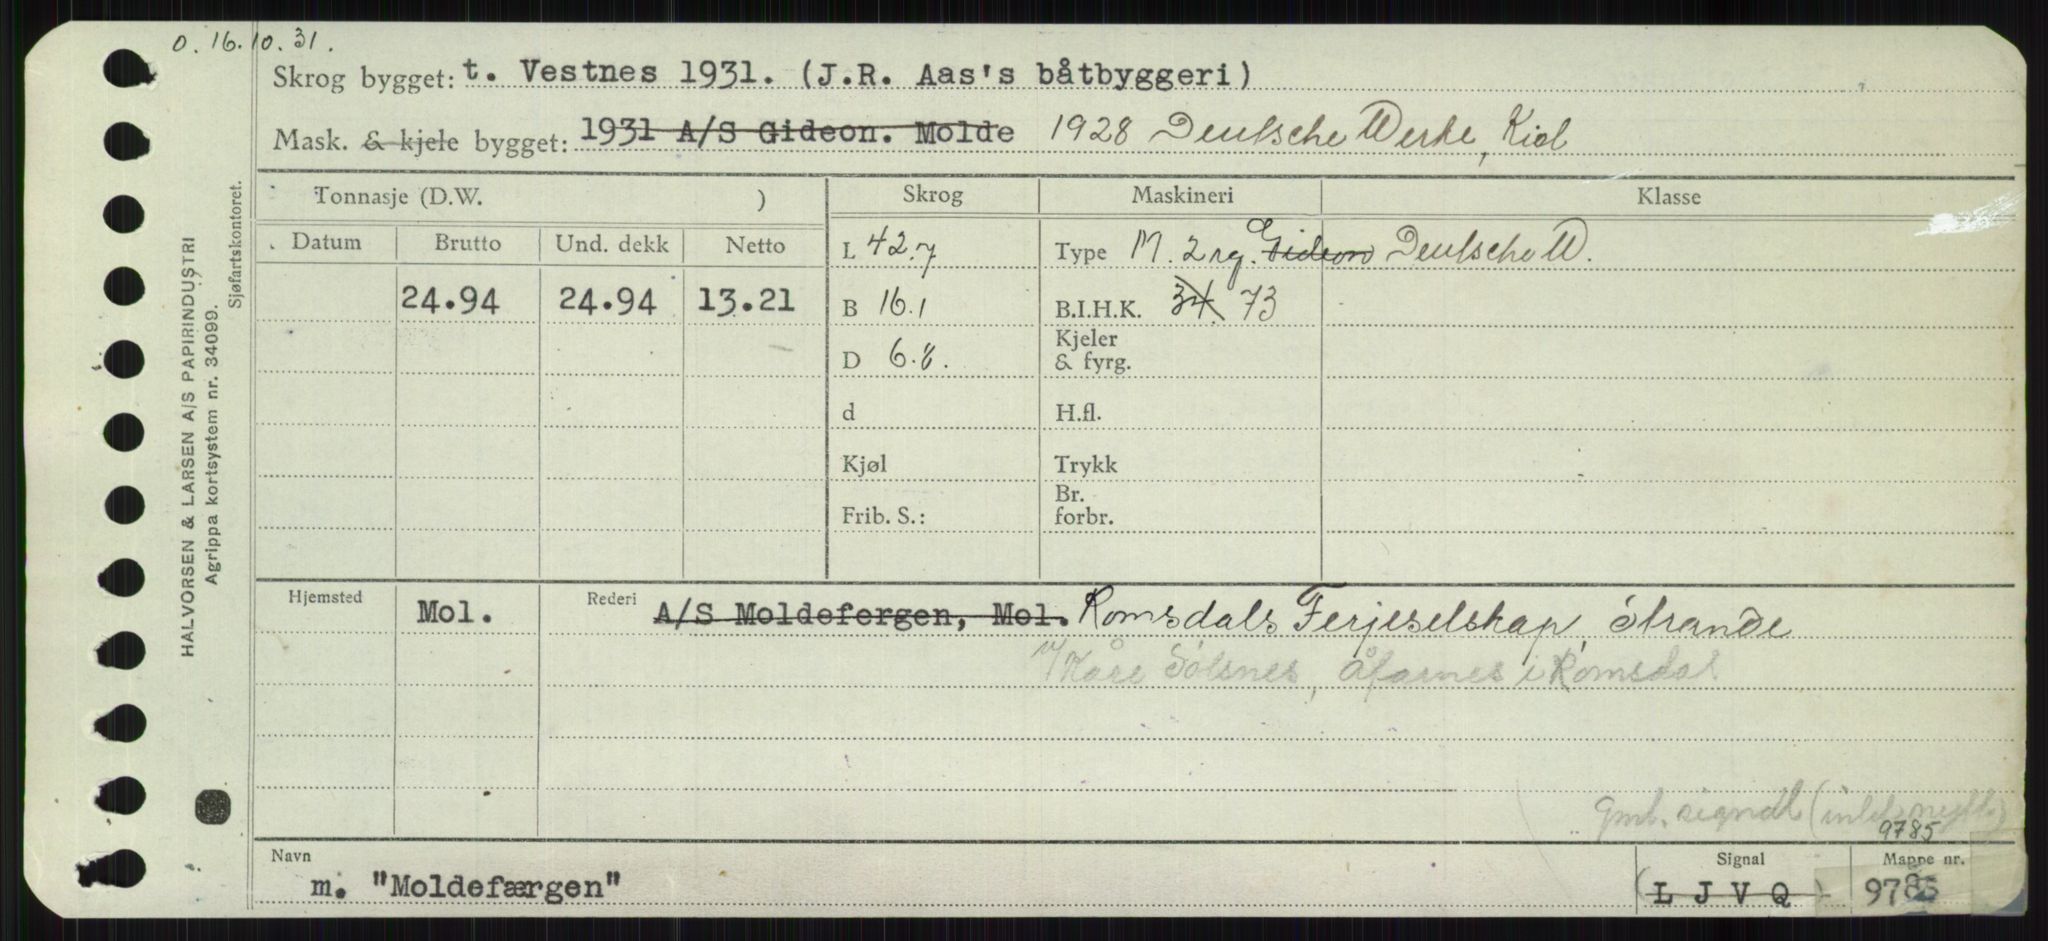 0. 16.10.31.
Skrog bygget: t. Vestnes 1931. (J.R. Aas's båtbyggeri)
Mask. & kjele bygget: 1931 A/S Gideon. Molde 1928 Deutsche Werke, Kiel
Tonnasje (D.W. ) Skrog Maskineri Klasse
Datum Brutto Und. dekk Netto L 42.7 Type M. 2 rg. Gideon Deutsche W.
24.94 24.94 13.21 B 16.1 B.I.H.K. 34. 73
D 6.8. Kjeler & fyrg.
d H.fl.
Kjøl Trykk
Frib. S.: Br. forbr.
Hjemsted Mol. Rederi A/S Moldefergen, Mol. Romsdals Ferjeselskap, Strande
v/Kåre Sølsnes, Åfarnes i Romsdal
gml. signal (
9785
Navn Signal Mappe nr.
m. "Moldefærgen" (L J V Q) 9786
HALVORSEN & LARSEN A/S PAPIRINDUSTRI
Agrippa kortsystem nr. 34099.
Sjøfartskontoret.